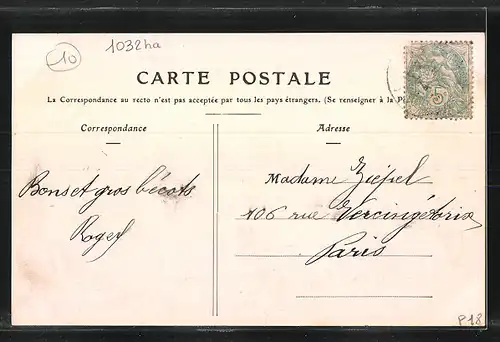 10
1032ha
CARTE POSTALE
La Correspondance au recto n'est pas acceptée par tous les pays étrangers. (Se renseigner à la
5
Correspondance
Adresse
Bons et gros bécots
Roger
Madame Ziépel
106 rue Vercingétorix
Paris
P18